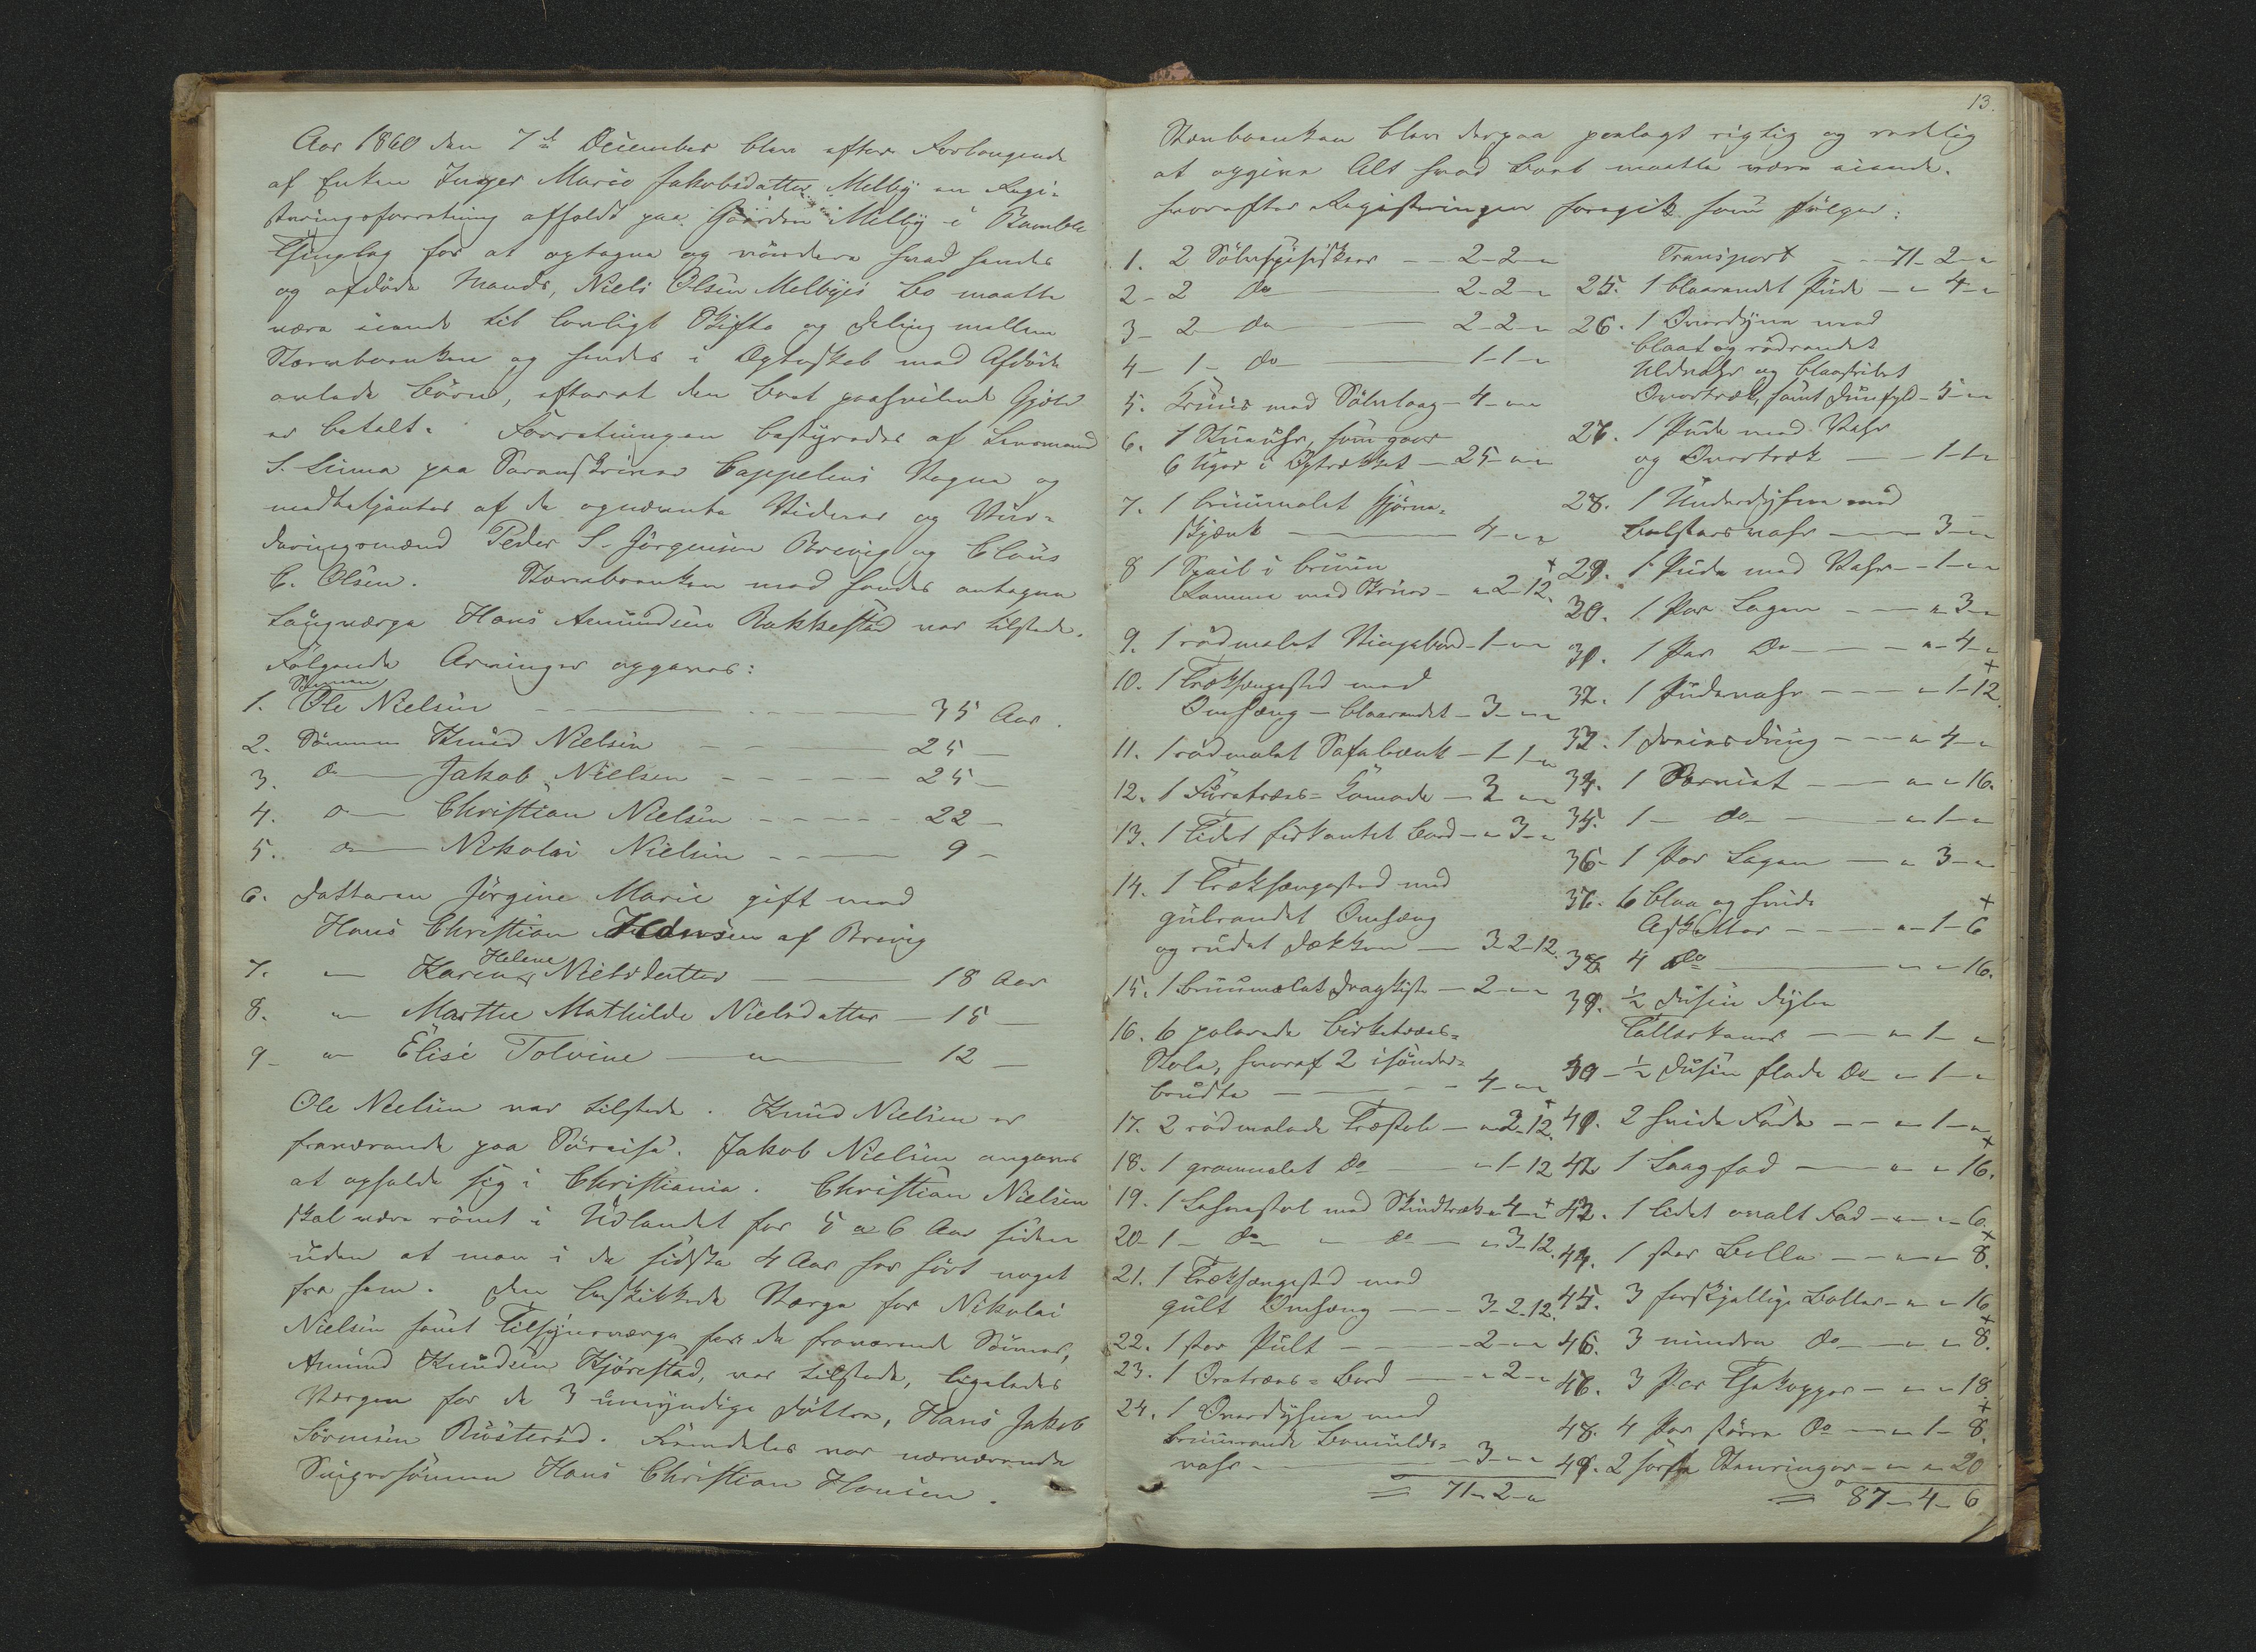 Aar 1860 den 7de December blev efter Forlangende
af Enken Inger Marie Jakobsdatter Melby en Regi-
streringsforretning afholdt paa Gaarden Melby i Bamble
Thinglag for at optegne og vurdere hvad hendes
og afdøde Mands, Niels Olsen Melbyes Bo maatte
være eiende til lovligt Skifte og Deling mellem
Stervboenken og hendes i Ægteskab med Afdøde
avlede Børn, efterat den Boet paahvilende Gjæld
er betalt. Forretningen bestyredes af Lensmand
S. Linna paa Sorenskriver Cappelens Vegne og
medbetjentes af de opnævnte Vidner og Vur-
deringsmænd Peder S. Jörgensen Brevig og Claus
C. Olsen. Stervboenken med hendes antagne
Laugværge Hans Amundsen Bakkestad var tilstede.
Følgende Arvinger opgaves:
1. Sønnen Ole Nielsen 35 Aar.
2. Sønnen Knud Nielsen 25
3. do Jakob Nielsen 25
4. do Christian Nielsen 22
5. do Nikolai Nielsen 9
6. Datteren Jörgine Marie gift med
Hans Christian Hansen af Brevig
7. " Karen Helene Nielsdatter 18 Aar
8. " Marthe Mathilde Nielsdatter 15
9 " Elise Tolvine " 12
Ole Nielsen var tilstede. Knud Nielsen er
fraværende paa Søreise. Jakob Nielsen angaves
at opholde sig i Christiania. Christian Nielsen
skal være rømt i Udlandet for 5 a 6 Aar siden
uden at man i de sidste 4 Aar har hørt noget
fra ham. Den beskikkede Værge for Nikolai
Nielsen samt Tilsynsværge for de fraværende Sønner,
Amund Knudsen Kjørestad, var tilstede, ligeledes
Værgen for de 3 umyndige Døttre, Hans Jakob
Sørensen Rösteröd. Fremdeles var nærværende
Svigersønnen Hans Christian Hansen.
13.
Stervboenken blev derpaa paalagt rigtig og redelig
at opgive Alt hvad Boet maatte være eiende,
hvorefter Registreringen foregik som følger:
1. 2 Sølvspiseskeer 2-2-"
2- 2 do 2-2-"
3- 2 do 2-2-"
4- 1- do 1-1-"
5. Kruus med Sølvlaag - 4-"-"
6. 1 Stueuhr, som gaar
6 Uger i Optrækket - 25-"-"
7. 1 bruunmalet Hjørne-
skjænk 4-"-"
8 1 Speil i bruun
Ramme med Skruer - "-2-12.
9. 1 rødmalet Vingebord - 1-"-"
10. 1 Træksengested med
Omhæng - blaarandet - 3-"-"
11. 1 rødmalet Sofabænk - 1-1-"
12. 1 Furetræes-Komode - 3-"-"
13. 1 lidet firkantet Bord - "-3-"
14. 1 Træksengested med
gulrandet Omhæng
og rudet Dækken - 3-2-12.
15. 1 bruunmalet Dragkiste - 2-"-"
16. 6 polerede Birketræes-
Stole, hvoraf 2 isønder-
brudte 4-"-"
17. 2 rødmalede Træstole - "-2-12.
18. 1 grønmalet do "-1-12
19. 1 Lehnestol med Skindtræk - "-4-"
20- 1- do " do - "-3-12.
21. 1 Træksengested med
gult Omhæng 3-2-12.
22. 1 stor Pult 2-"-"
23. 1 Oretræes-Bord - "-2-"
24. 1 Overdyhne med
bruunrande Bomulds-
vahr 3-"-"
71-2-"
Transport 71-2-"
25. 1 blaarandet Pude - "-4-"
26. 1 Overdyne med
blaat og rødrandet
Uldvahr og blaastribet
Overtræk, samt Duunfyld - 5-"-"
27. 1 Pude med Vahr
og Overtræk 1-1-"
28. 1 Underdyhne med
Bolstervahr 3-"-"
29. 1 Pude med Vahr - 1-"-"
30. 1 Par Lagen "-3-"
31. 1 Par Do "-4-"
32. 1 Pudevahr "-1-12.
33. 1 Dreiersdug "-4-"
34. 1 Serviet "-"-16.
35. 1- do "-1-"
36- 1 Par Lagen "-3-"
37. 6 blaa og hvide
Askitter "-1-6
38. 4 Do "-"-16.
39. ½ Dusin dybe
Tallerkener "-1-"
40- ½ Dusin flade Do "-1-"
41. 2 hvide Fade "-1-"
42 1 Laagfad "-"-16.
43. 1 lidet ovalt Fad - "-"-6.
44. 1 stor Bolle "-"-8.
45. 3 forskjellige Boller - "-"-16.
46. 3 mindre do "-"-8.
47. 3 Par Thekopper - "-"-18
48. 4 Par større Do "-1-8.
49. 2 Stenringer - "-"-20
87-4-6